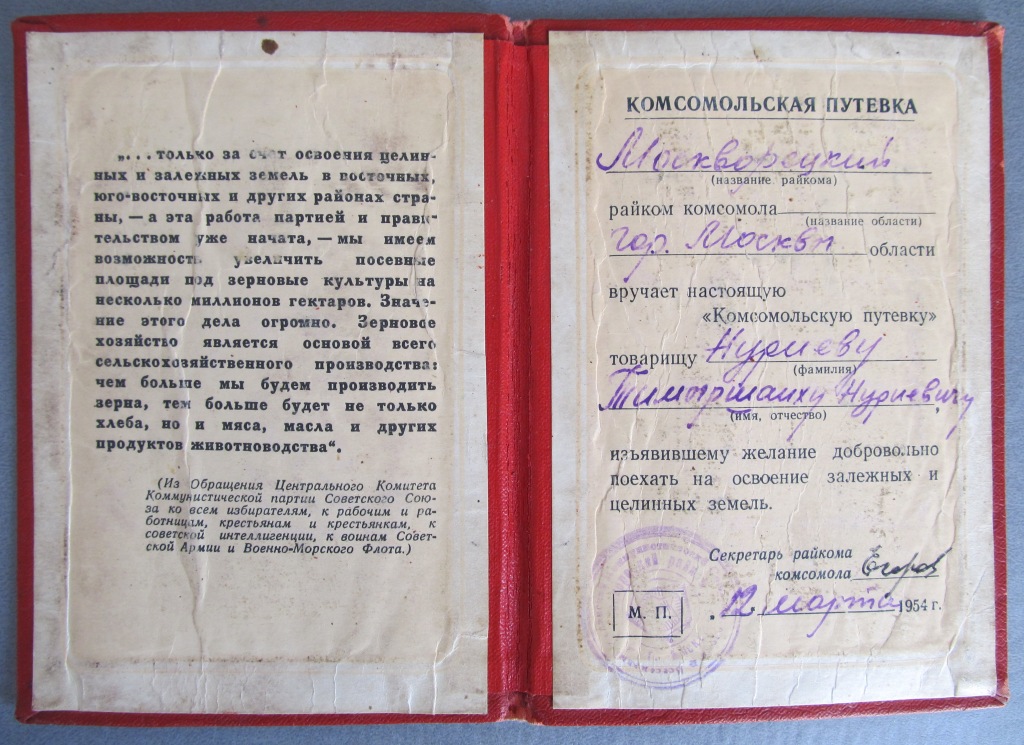 „...только за счет освоения целин-
ных и залежных земель в восточных,
юго-восточных и других районах стра-
ны, — а эта работа партией и прави-
тельством уже начата, — мы имеем
возможность увеличить посевные
площади под зерновые культуры на
несколько миллионов гектаров. Значе-
ние этого дела огромно. Зерновое
хозяйство является основой всего
сельскохозяйственного производства:
чем больше мы будем производить
зерна, тем больше будет не только
хлеба, но и мяса, масла и других
продуктов животноводства“.
(Из Обращения Центрального Комитета
Коммунистической партии Советского Сою-
за ко всем избирателям, к рабочим и ра-
ботницам, крестьянам и крестьянкам, к
советской интеллигенции, к воинам Совет-
ской Армии и Военно-Морского Флота.)
КОМСОМОЛЬСКАЯ ПУТЕВКА
Москворецкий
(название райкома)
райком комсомола
(название области)
гор. Москвы области
вручает настоящую
«Комсомольскую путевку»
товарищу Нуриеву
(фамилия)
Нуриевичу
(имя, отчество)
изъявившему желание добровольно
поехать на освоение залежных и
целинных земель.
Секретарь райкома
комсомола Егоров
М. П.
12 марта 1954 г.